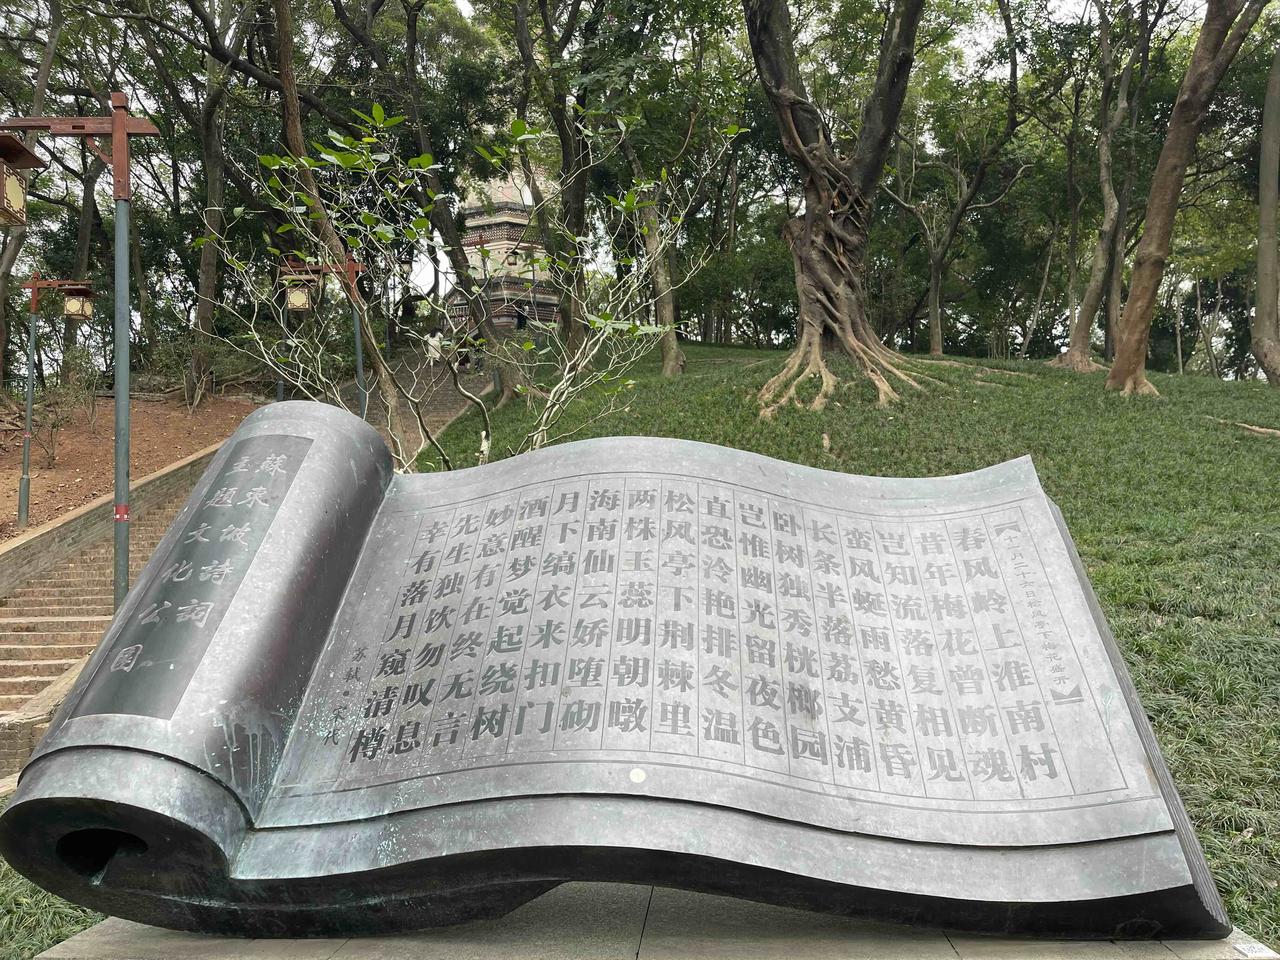 【十一月二十六日松风亭下梅花盛开】
春风岭上淮南村
昔年梅花曾断魂
岂知流落复相见
蛮风蜒雨愁黄昏
长条半落荔支浦
卧树独秀桄榔园
岂惟幽光留夜色
直恐泠艳排冬温
松风亭下荆棘里
两株玉蕊明朝暾
海南仙云娇堕砌
月下缟衣来扣门
酒醒梦觉起绕树
妙意有在终无言
先生独饮勿叹息
幸有落月窥清樽
苏轼·宋代
蘇東坡詩詞
主題文化公園